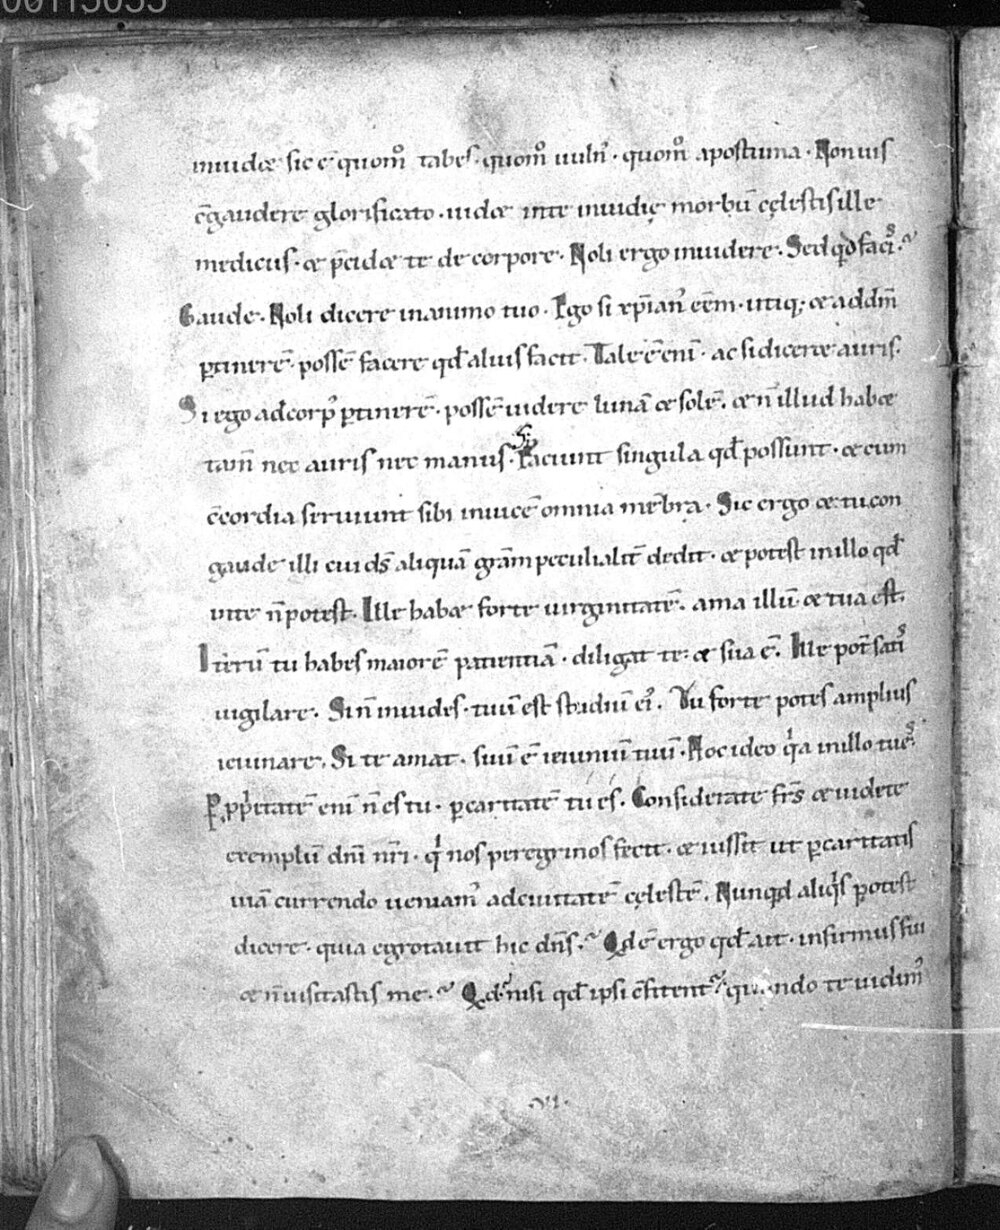 00115055
inuidet sic ē quom̊ tabes· quom̊ uuln̄· quom̊ apostuma· Non uis
c̄gaudere glorificato· uidet in te inuidię morbū cęlestis ille
medicus· et p̄cidet te de corpore· Noli ergo inuidere· Sed qd̄ facis·
Gaude· Noli dicere in animo tuo· Ego si xp̄ian᾽ eēm· utiq; et ad dm̄
ꝑtinerē· possē facere qd̄ aluis facit· Tale ē eni̅· ac si diceret auris·
Si ego ad corp᾽ ꝑtinerē· possē uidere lunā et solē· et n̄ illud habet
tam̄ nec auris nec manus· S; Faciunt singula qd̄ possunt· et cum
c̄cordia seruiunt sibi inuicē omnia mēbra· Sic ergo et tu con
gaude illi cui ds̄ aliquā gr̄am peculialit̄ dedit· et potest in illo qd̄
in te n̄ potest· Ille habet forte uirginitatē· ama illū et tua est·
Iterū tu habes maiorē patientiā· diligat te· et sua ē· Ille pot̄ satis
uigilare· Si n̄ inuides· tuū est studiū ei᾽· Tu forte potes amplius
ieiunare· Si te amat· suū ē ieiuniū tuū· Hoc ideo qͥa in illo tu es·
P ꝓpͥetatē eni̅ n̄ es tu· ꝑ caritatē tu es· Considerate fr̄s et uidete
exemplū dn̄i nr̄i· qͥ nos peregrinos fecit· et iussit ut ꝑ caritatis
uiā currendo ueniam᾽ ad ciuitatē cęlestē· Nunqd̄ aliqͥs potest
dicere· quia egrotauit hic dn̄s· Qd ē ergo qd̄ ait· infirmus fui
et n̄ uisitastis me· Qd nisi qd̄ ipsi c̄fitent᾽· quando te uidim᾽
VI·